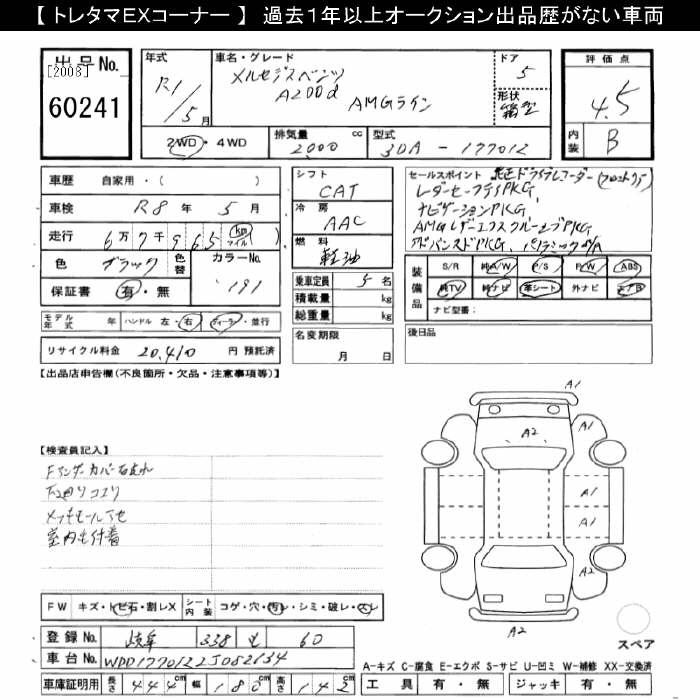 【 トレタマEXコーナー 】 過去１年以上オークション出品歴がない車両
出 品 No.
[2008]
60241
年式
R1/5月
車名・グレード
メルセデスベンツ
A200d
AMGライン
ドア
5
形状
箱型
評 価 点
4.5
内装
B
2WD・4WD
排気量
2,000 cc
型式
3DA - 177012
車歴 自家用・( )
車検 R8 年 5 月
走行 6万7千965 km マイル
色 ブラック
色替
カラーNo.
191
保証書 有・無
モデル年式 年
ハンドル 左・右
ディーラ・並行
リサイクル料金 20,410 円 預託済
シフト
CAT
冷房
AAC
燃料
軽油
乗車定員 5 名
積載量 kg
総重量 kg
名変期限
月 日
セールスポイント 純正ドライブレコーダー(フロントリア)
レーダーセーフティPKG,
ナビゲーションPKG,
AMGレザーエクスクルーシブPKG,
アドバンスドPKG, パノラミックS/R
装備品
S/R 純A/W P/S P/W ABS
純TV 純ナビ 革シート 外ナビ エアB
ナビ型番：
後日品
【出品店申告欄(不良箇所・欠品・注意事項等)】
【検査員記入】
Fアンダーカバー右われ
下廻りコスリ
メッキモール
室内
A1
A2
A1
A1
A1
A2
A2
スペア
FW キズ・トビ石・割レX
シート内装 コゲ・穴・汚レ・シミ・破レ・スレ
登録 No. 岐阜 338 も 60
車台 No. WDD1770122J082134
車庫証明用 長さ 444cm 幅 180cm 高さ 142cm
A-キズ C-腐食 E-エクボ S-サビ U-凹ミ W-補修 XX-交換済
工 具 有 ・ 無 ジャッキ 有 ・ 無